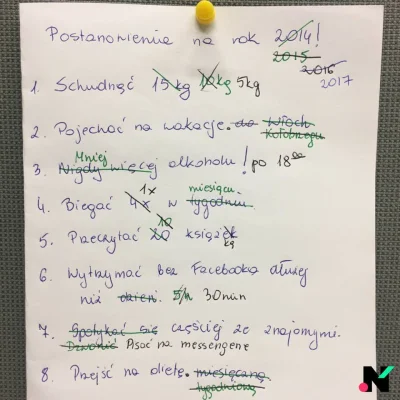 Postanowienia na rok 2014!
2015
2016
2017
1. Schudnąć 15 kg 10kg 5kg
2. Pojechać na wakacje. do Włoch
Kołobrzegu
Mniej
3. Nigdy więcej alkoholu! po 18⁰⁰
1x miesiącu
4. Biegać 4x w tygodniu
10
5. Przeczytać 20 książek
kę
6. Wytrzymać bez Facebooka dłużej
niż dzień. 5h 30min
7. Spotykać się częściej ze znajomymi.
Dzwonić Pisać na messengerze
8. Przejść na dietę. miesięczną
tygodniową
N